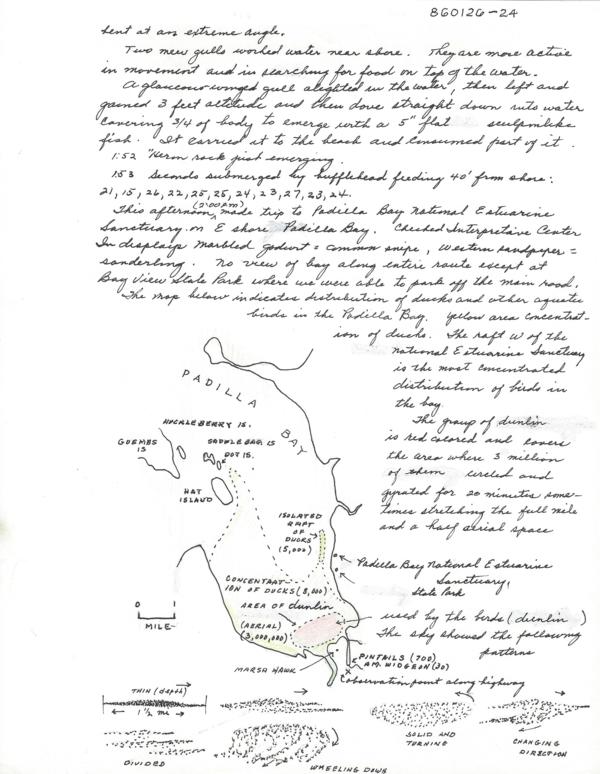 860126-24
bent at an extreme angle.
Two mew gulls worked water near shore. They are more active
in movement and in searching for food on top of the water.
A glaucous-winged gull alighted in the water, then left and
gained 3 feet altitude and then dove straight down into water
covering 3/4 of body to emerge with a 5" flat sculpinlike
fish. It carried it to the beach and consumed part of it.
1:52 "Heron rock just emerging.
1:53 Seconds submerged by bufflehead feeding 40' from shore:
21, 15, 26, 22, 25, 25, 24, 23, 27, 23, 24.
This afternoon (2:00 PM) made trip to Padilla Bay National Estuarine
Sanctuary on E shore Padilla Bay. Checked Interpretive Center
In displays marbled godwit = common snipe, western sandpiper =
sanderling. No view of bay along entire route except at
Bay View State Park where we were able to park off the main road.
The map below indicates distribution of ducks and other aquatic
birds in the Padilla Bay. yellow area concentrat-
ion of ducks. The raft W of the
National Estuarine Sanctuary
is the most concentrated
distribution of birds in
the bay.
The group of dunlin
is red colored and covers
the area where 3 million
of them circled and
gyrated for 20 minutes some-
times stretching the full mile
and a half aerial space
used by the birds (dunlin)
The sky showed the following
patterns
PADILLA BAY
HUCKLEBERRY IS.
GUEMES
IS
SADDLEBAG IS
DOT IS.
HAT
ISLAND
ISOLATED
RAFT
OF
DUCKS
(5,000)
Padilla Bay National Estuarine
Sanctuary,
State Park
CONCENTRAT-
ION OF DUCKS (8,000)
AREA OF dunlin
(AERIAL)
(3,000,000)
0 1
MILE
MARSH HAWK
PINTAILS (700)
AM. WIDGEON (30)
Observation point along highway
THIN (depth)
1 1/2 mi
DIVIDED
WHEELING DOWN
SOLID AND
TURNING
CHANGING
DIRECTION